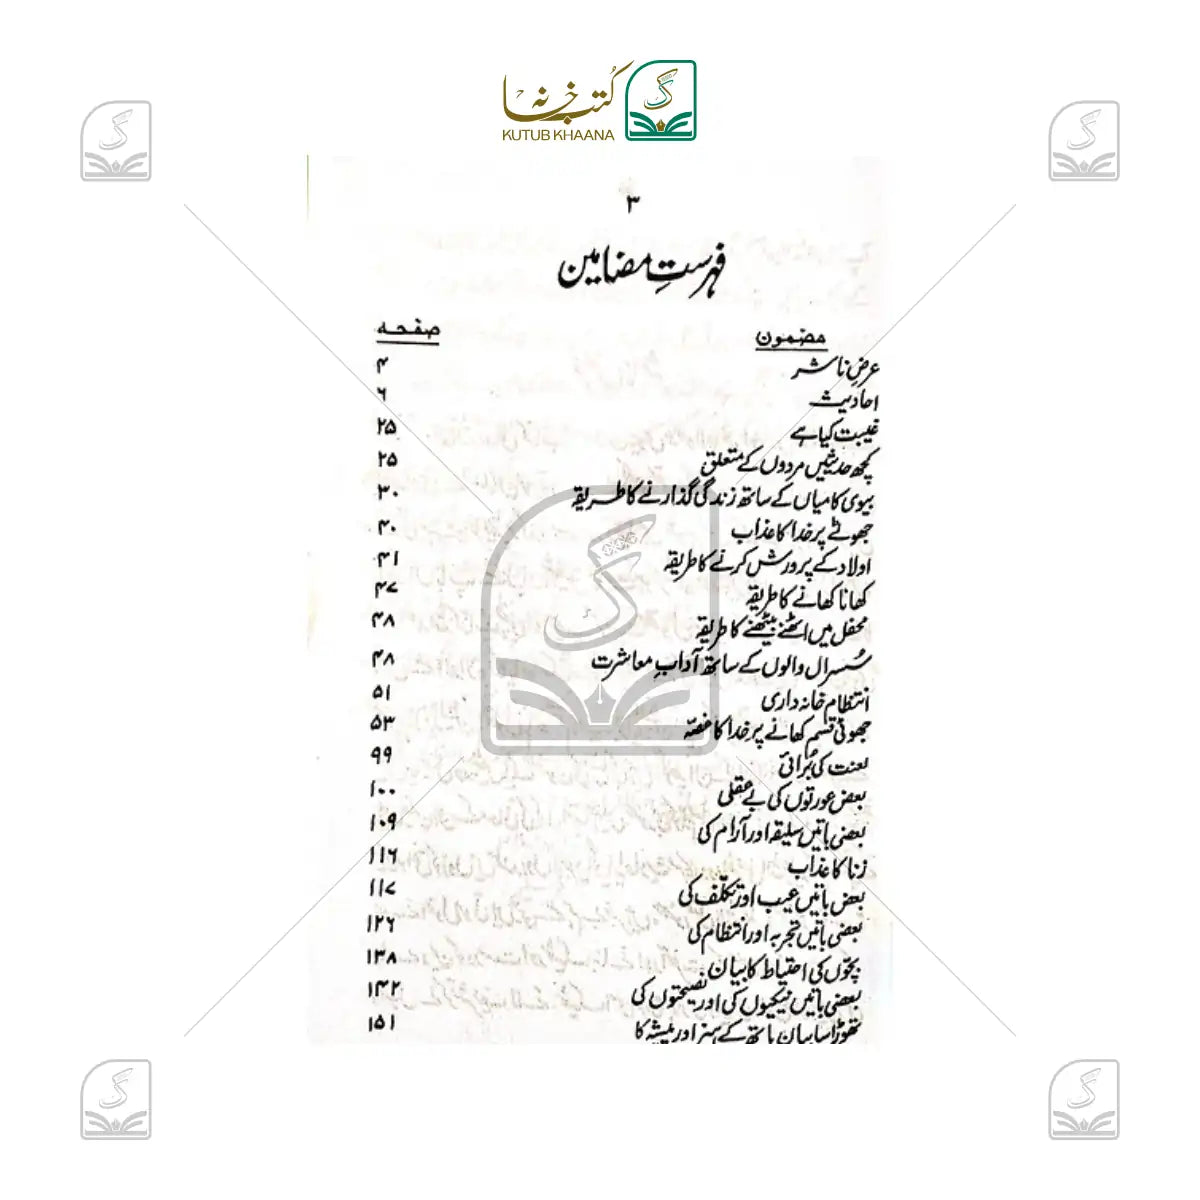 کتب خانہ
KUTUB KHAANA
۳
فہرستِ مضامین
مضمون صفحہ
عرضِ ناشر ۴
احادیث ۶
غیبت کیا ہے ۲۵
کچھ حدیثیں مردوں کے متعلق ۲۵
بیوی کا میاں کے ساتھ زندگی گذارنے کا طریقہ ۳۰
جھوٹے پر خدا کا عذاب ۴۰
اولاد کے پرورش کرنے کا طریقہ ۴۱
کھانا کھانے کا طریقہ ۴۷
محفل میں اٹھنے بیٹھنے کا طریقہ ۴۸
سُسرال والوں کے ساتھ آدابِ معاشرت ۴۸
انتظام خانہ داری ۵۱
جھوٹی قسم کھانے پر خدا کا غصّہ ۵۳
لعنت کی بُرائی ۹۹
بعض عورتوں کی بے عقلی ۱۰۰
بعضی باتیں سلیقہ اور آرام کی ۱۰۹
زنا کا عذاب ۱۱۶
بعض باتیں عیب اور تکلّف کی ۱۱۷
بعضی باتیں تجربہ اور انتظام کی ۱۲۶
بچّوں کی احتیاط کا بیان ۱۳۸
بعضی باتیں نیکیوں کی اور نصیحتوں کی ۱۴۲
تھوڑا سا بیان ہاتھ کے ہنر اور پیشہ کا ۱۵۱